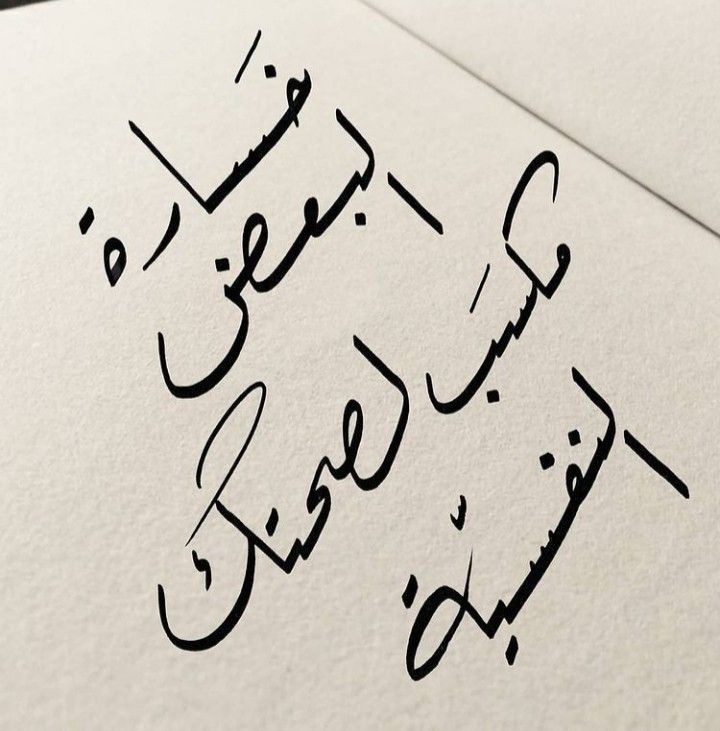 خَسارة
البعض
مكسَب لصحتك
النفسيّة